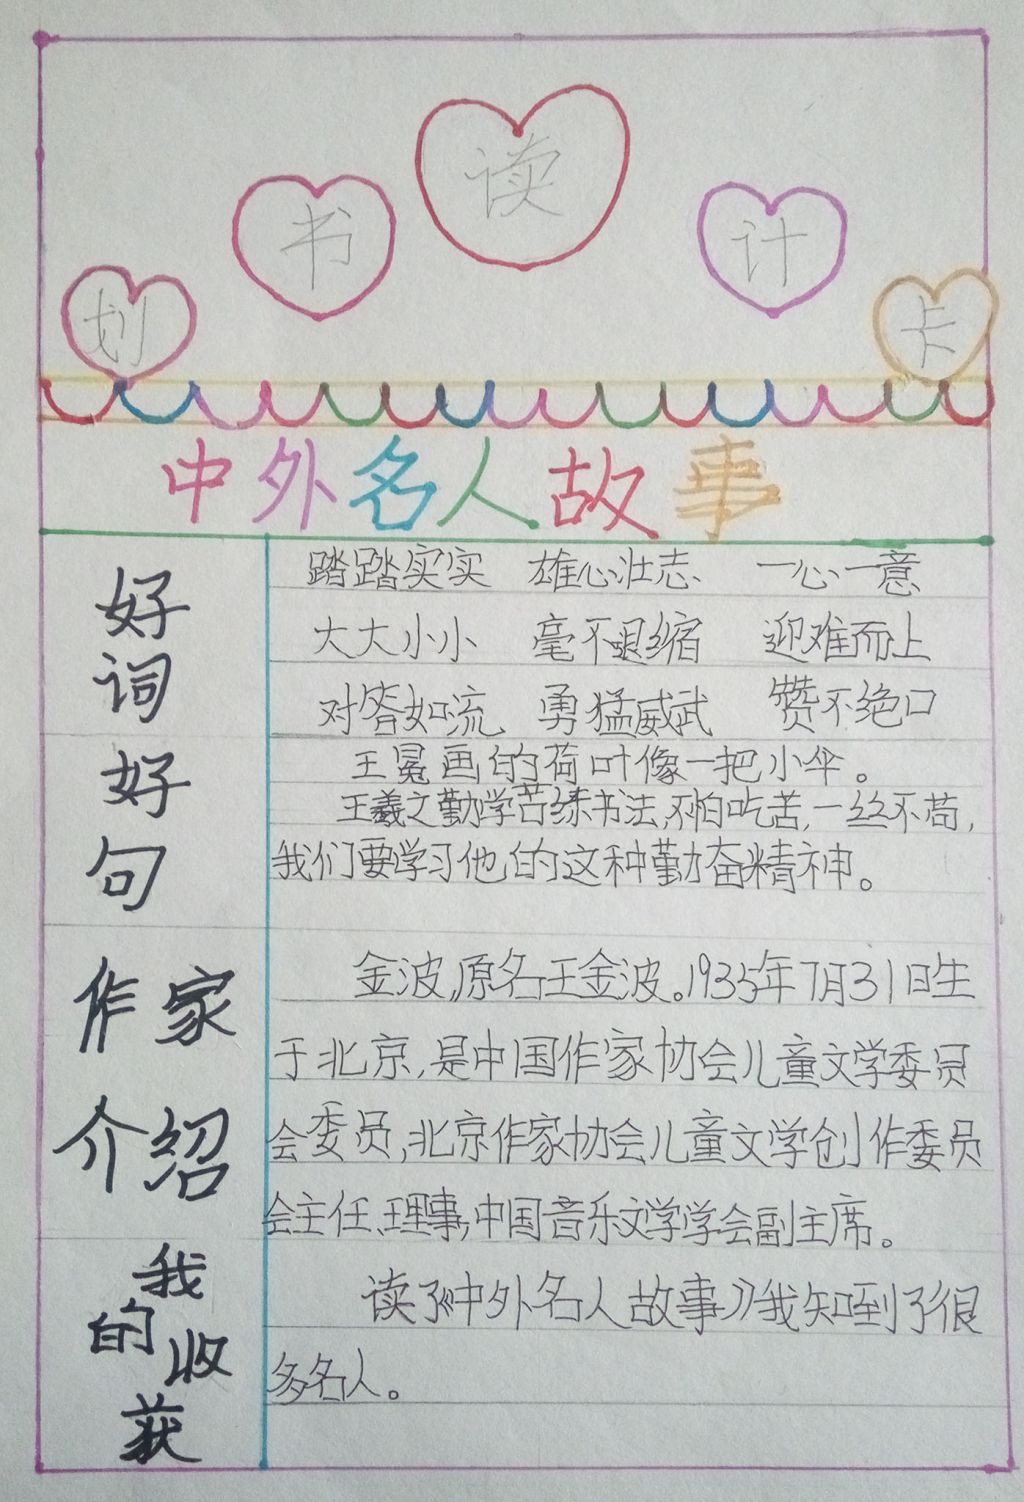 划书读计卡
中外名人故事
好词
踏踏实实 雄心壮志 一心一意
大大小小 毫不退缩 迎难而上
对答如流 勇猛威武 赞不绝口
好句
王冕画的荷叶像一把小伞。
王羲之勤学苦练书法,不怕吃苦,一丝不苟,
我们要学习他的这种勤奋精神。
作家
介绍
金波,原名王金波。1935年7月31日生
于北京,是中国作家协会儿童文学委员
会委员,北京作家协会儿童文学创作委员
会主任、理事,中国音乐文学学会副主席。
我的收获
读了《中外名人故事》我知到了很
多名人。